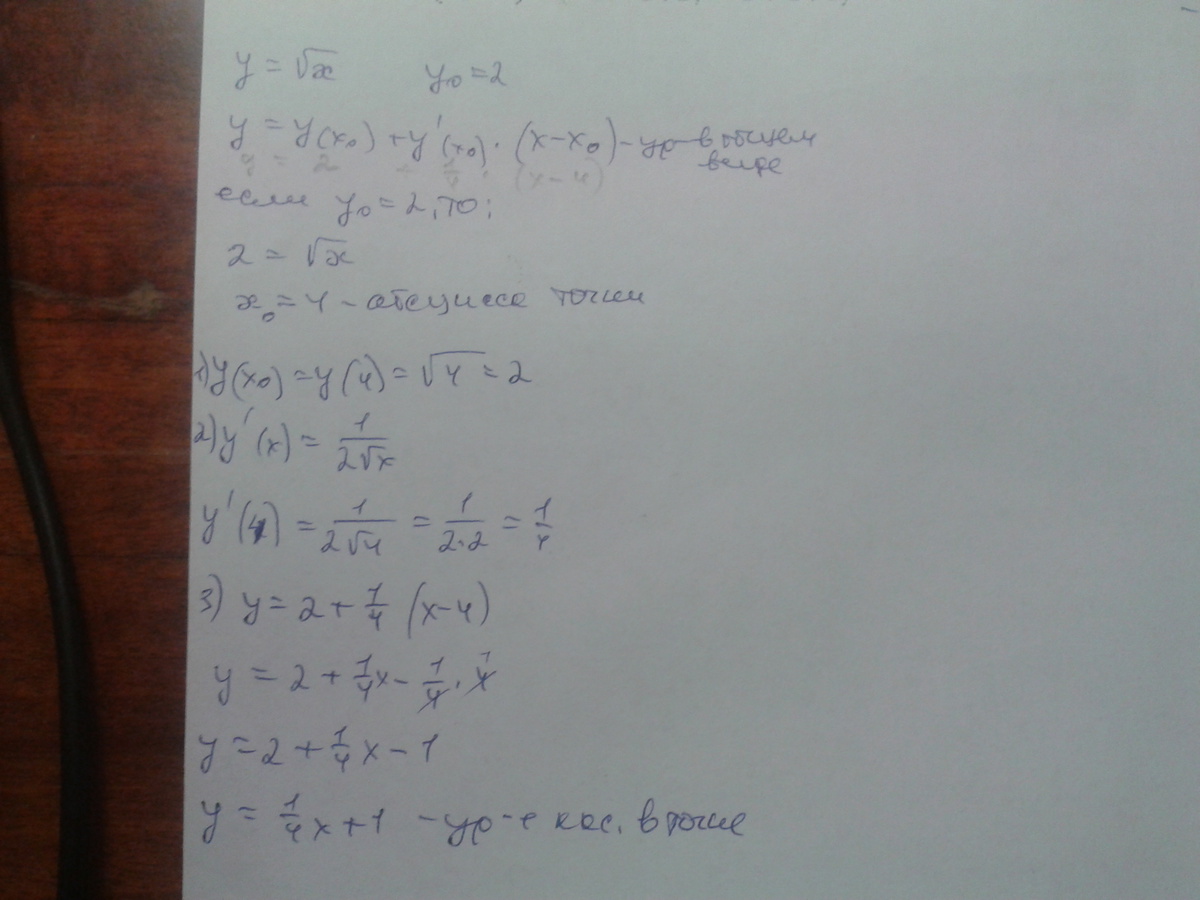 y = √x y₀ = 2
y = y(x₀) + y'(x₀) · (x - x₀) - ур-е в общем
виде
y = 2 + 1/4 · (x - 4)
если y₀ = 2, то:
2 = √x
x₀ = 4 - абсцисса точки
1) y(x₀) = y(4) = √4 = 2
2) y'(x) = 1/(2√x)
y'(4) = 1/(2√4) = 1/(2·2) = 1/4
3) y = 2 + 1/4 (x - 4)
y = 2 + 1/4 x - 1/4 · 4 1
y = 2 + 1/4 x - 1
y = 1/4 x + 1 - ур-е кас. в точке